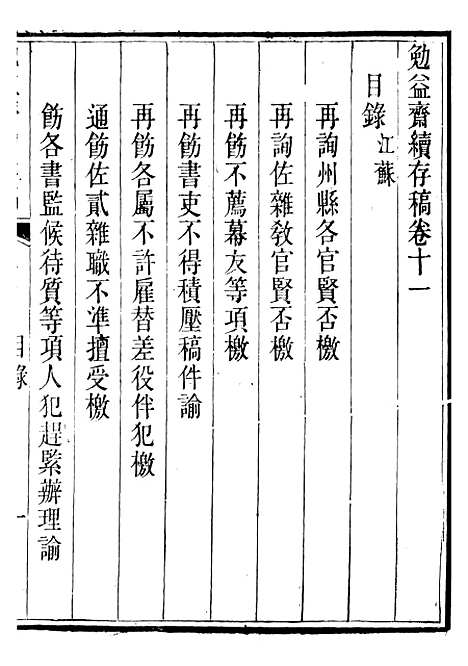 勉益齋續存稿卷十一
目錄 江蘇
再詢州縣各官賢否檄
再詢佐雜敎官賢否檄
再飭不薦幕友等項檄
再飭書吏不得積壓稿件諭
再飭各屬不許雇替差役伴犯檄
通飭佐貳雜職不準擅受檄
飭各書監候待質等項人犯趕緊辦理諭
目錄
一